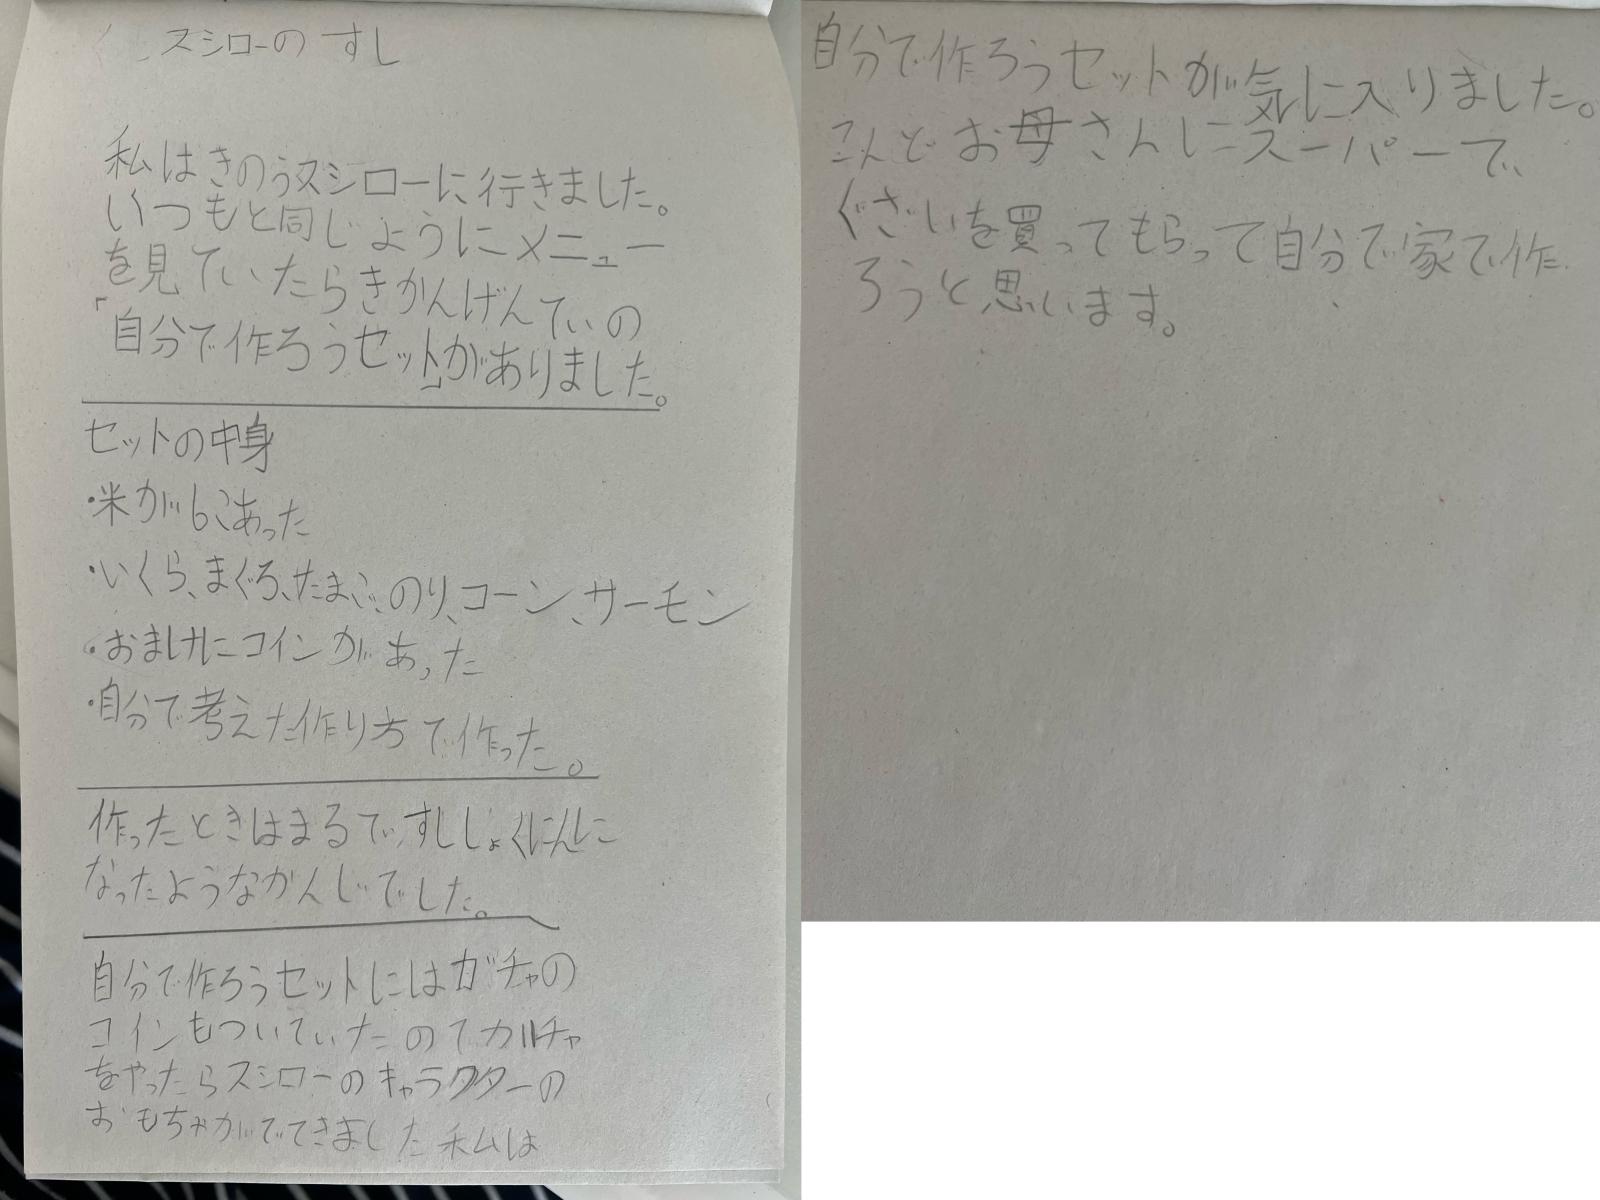 スシローの すし
私はきのうスシローに行きました。
いつもと同じようにメニュー
を見ていたらきかんげんていの
「自分で作ろうセット」がありました。
セットの中身
・米が6こあった
・いくら、まぐろ、たまご、のり、コーン、サーモン
・おまけにコインがあった
・自分で考えた作り方で作った。
作ったときはまるですししょくにんに
なったようなかんじでした。
自分で作ろうセットにはガチャの
コインもついていたのでガチャ
をやったらスシローのキャラクターの
おもちゃがでてきました私は
自分で作ろうセットが気に入りました。
こんどお母さんにスーパーで、
ぐざいを買ってもらって自分で家で作
ろうと思います。